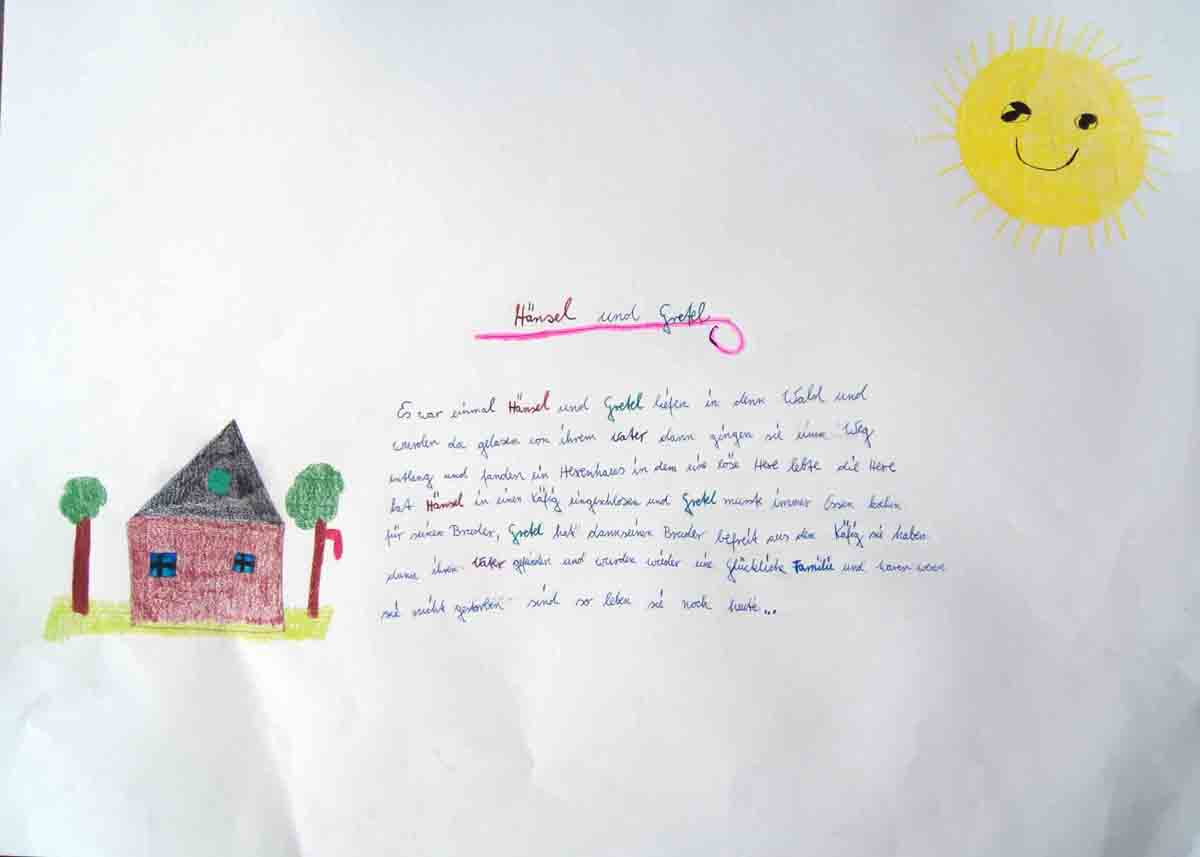 Hänsel und Gretel
Es war einmal Hänsel und Gretel liefen in denn Wald und
wurden da gelasen von ihrem Vater dann gingen sie einen Weg
entlang und fanden ein Hexenhaus in dem eine böse Hexe lebte die Hexe
hat Hänsel in einen Käfig eingeschlosen und Gretel musste immer Essen kochen
für seinen Bruder, Gretel hat dann seinen Bruder befreit aus dem Käfig sie haben
dann ihren Vater gefunden und wurden wieder eine Glückliche Familie und waren wenn
sie nicht gestorben sind so leben sie noch heute...